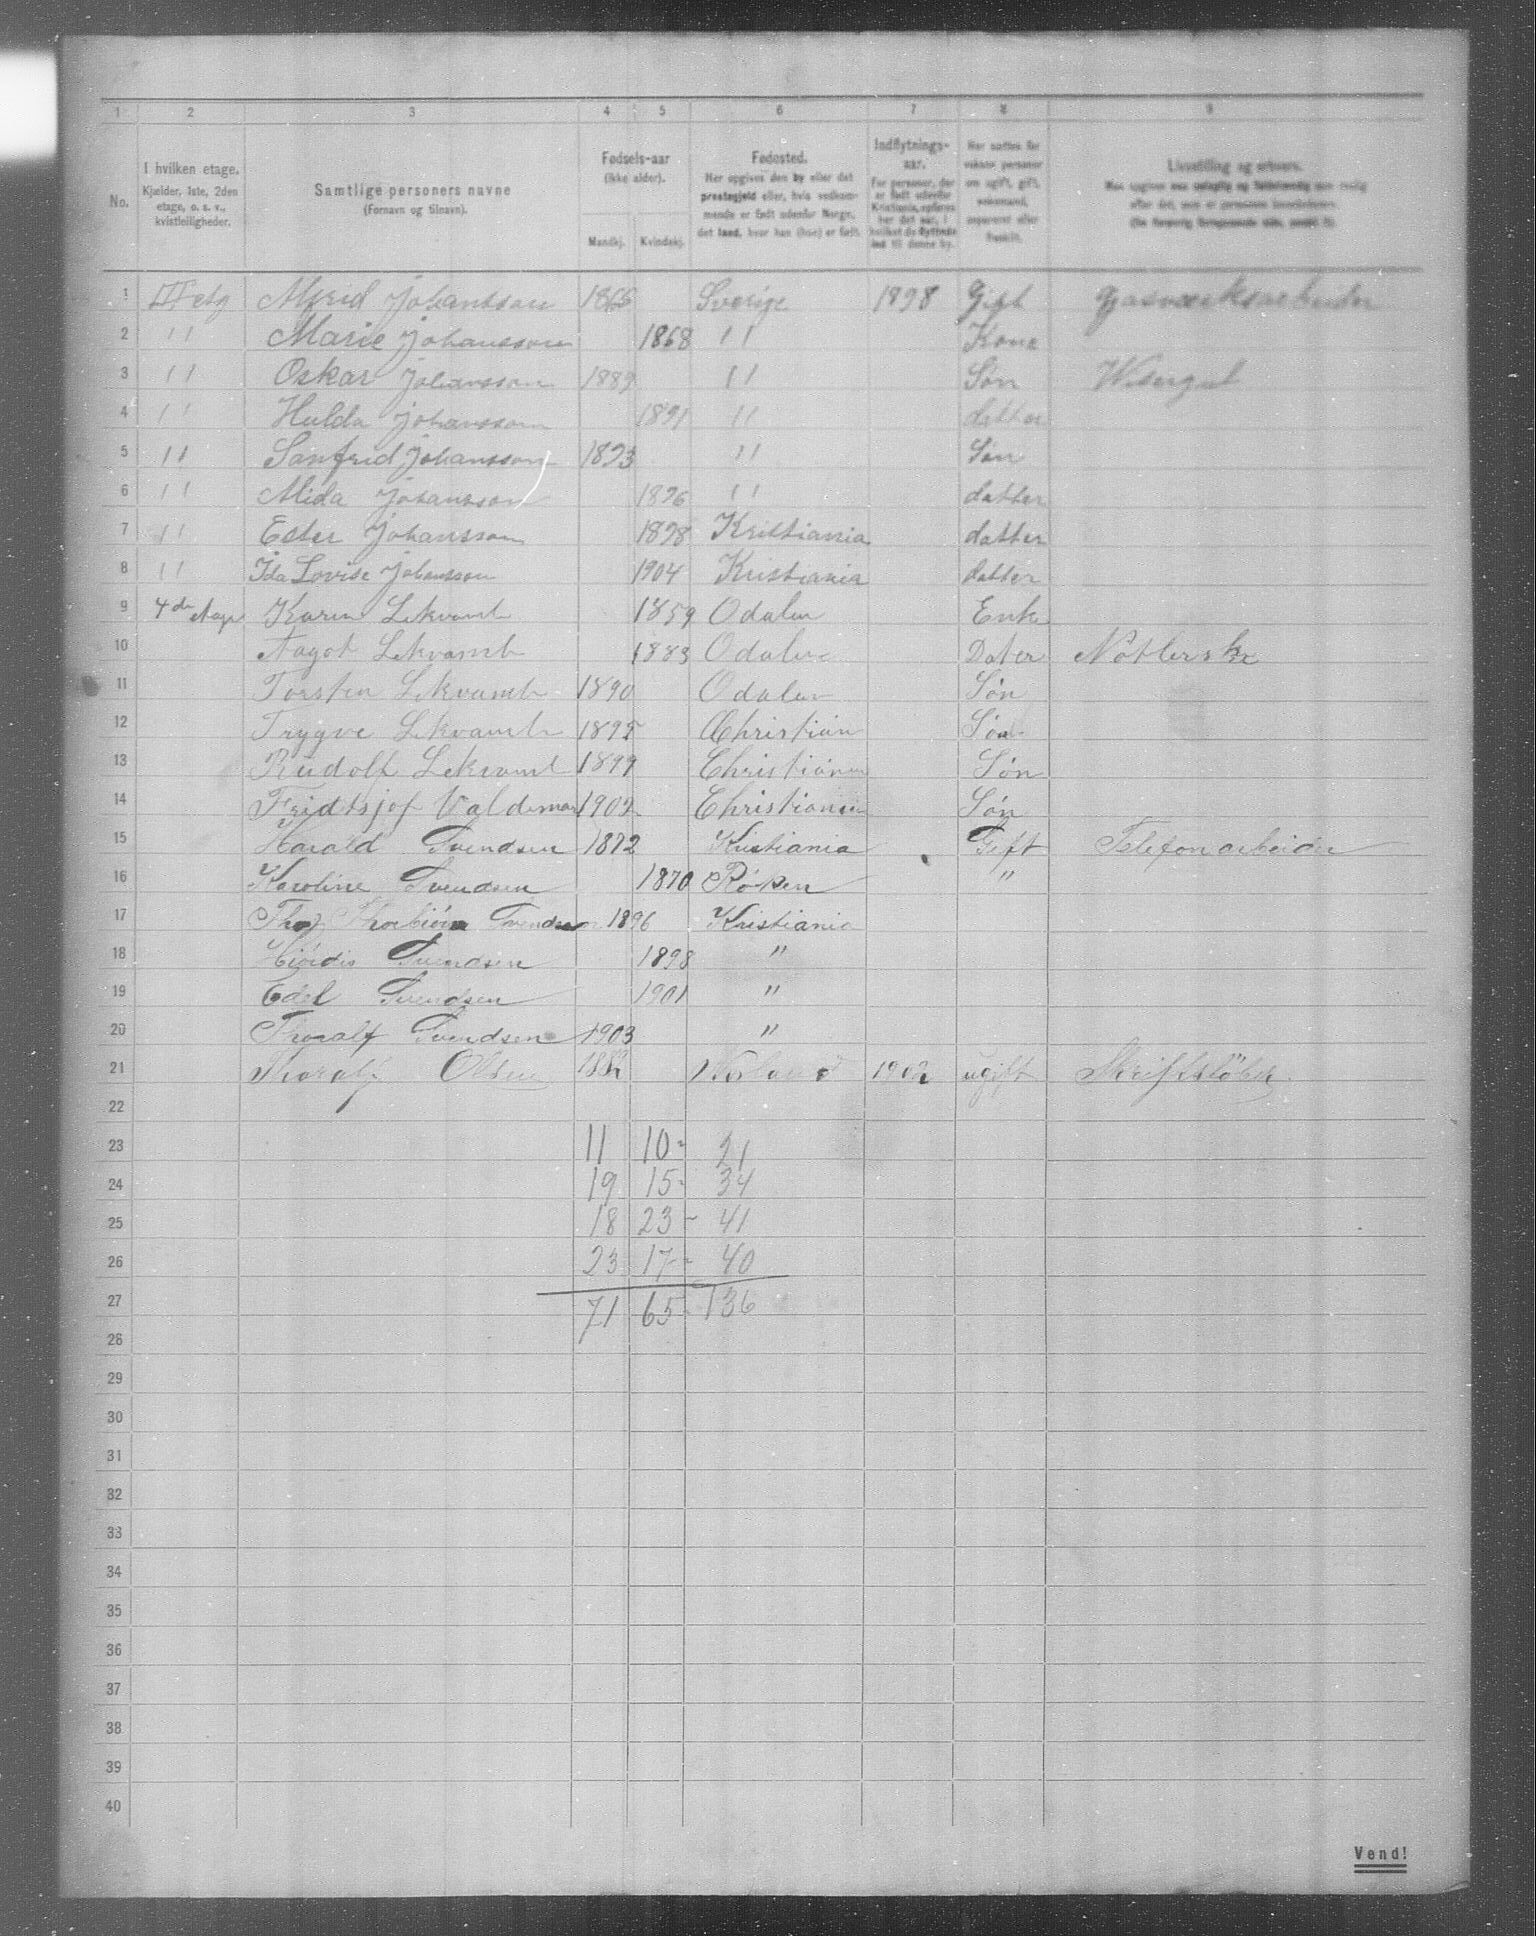 1 2 3 4 5 6 7 8 9
No.
I hvilken etage.
Kjælder, 1ste, 2den
etage, o. s. v.,
kvistleiligheder.
Samtlige personers navne
(Fornavn og tilnavn).
Fødsels-aar
(ikke alder).
Mandkj. Kvindekj.
Fødested.
Her opgives den by eller det
præstegjeld eller, hvis vedkom-
mende er født udenfor Norge,
det land, hvor han (hun) er født.
Indflytnings-
aar.
For personer, der
er født udenfor
Kristiania, opføres
her det aar, i
hvilket de flyttede
ind til denne by.
Her sættes for
voksne personer
om ugift, gift,
enkemand,
separeret eller
fraskilt.
Livsstilling og erhverv.
1 III etg Alfrid Johansson 1866 Sverige 1898 Gift Gasværksarbeider
2 " Marie Johansson 1868 " Kone
3 " Oskar Johansson 1889 " Søn Visergut
4 " Hulda Johansson 1891 " datter
5 " Sanfrid Johansson 1893 " Søn
6 " Alida Johansson 1896 " datter
7 " Ester Johansson 1898 Kristiania datter
8 " Ida Lovise Johansson 1904 Kristiania datter
9 4de Etage Karen Lekvamb 1859 Odalen Enke
10 Aagot Lekvamb 1883 Odalen Dater
11 Torsten Lekvamb 1890 Odalen Søn
12 Trygve Lekvamb 1895 Christian Søn
13 Rudolf Lekvamb 1899 Christiania Søn
14 Fridtsjof Valdemar 1902 Christiania Søn
15 Harald Svendsen 1872 Kristiania Gift Telefonarbeider
16 Karoline Svendsen 1870 Røken "
17 Thorbiörn Svendsen 1896 Kristiania
18 Hiördis Svendsen 1898 "
19 Edel Svendsen 1901 "
20 Thoralf Svendsen 1903 "
21 Thoralf Olsen 1882 1902 ugift
22
23 11 10 - 21
24 19 15 - 34
25 18 23 - 41
26 23 17 - 40
27 71 65 - 136
28
29
30
31
32
33
34
35
36
37
38
39
40
Vend!